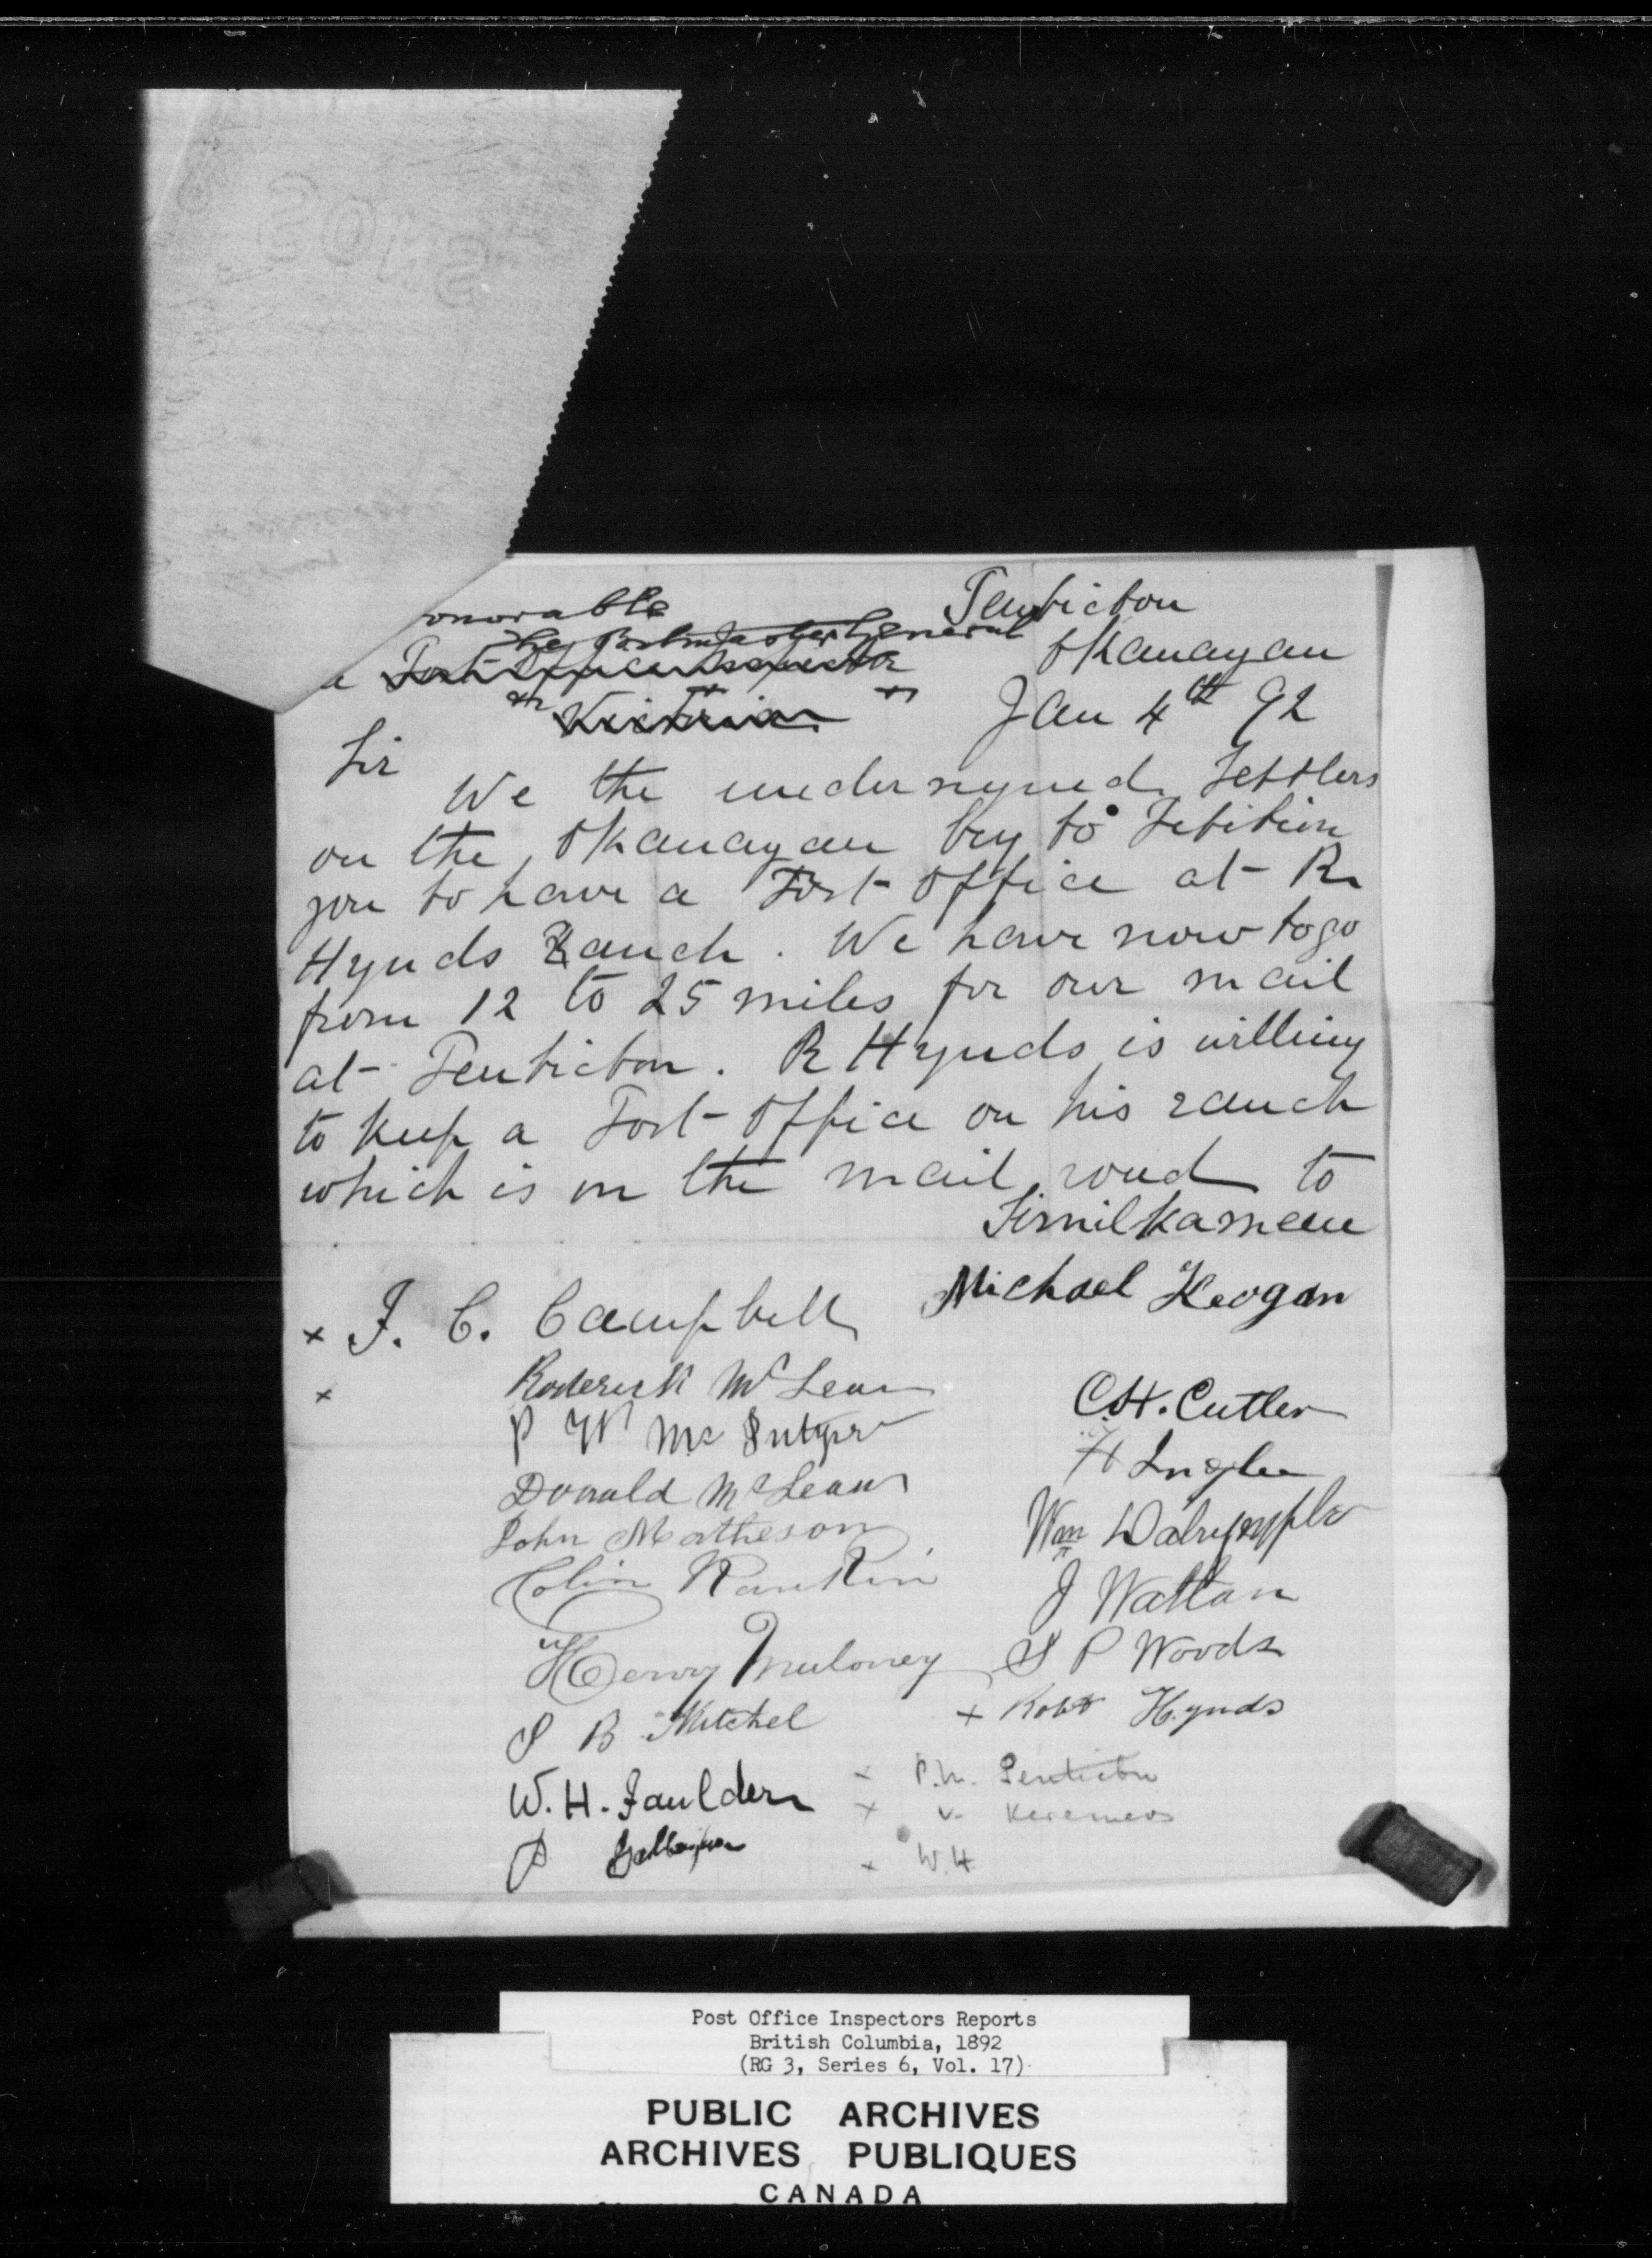 SNOS
onorable
The Postmaster General
Post Office Inspector
Victoria
Penticton
Okanagan
Jan 4th 92
Sir
We the undersigned Settlers
on the Okanagan beg to Petition
you to have a Post Office at R
Hynds Ranch. We have now to go
from 12 to 25 miles for our mail
at Penticton. R Hynds is willing
to keep a Post Office on his ranch
which is on the mail road to
Similkameen
Michael Keogan
x J. C. Campbell
x Roderick McLean
P W McIntyre
Donald McLean
John Matheson
Colin Rankin
Henry Muloney
S B Mitchel
W. H. Faulder
P
C.H. Cutler
H Inglee
Wm Dalrymple
J Wattan
S P Woods
x Robt Hynds
x P.M. Penticton
x " Keremeos
x W.H.
Post Office Inspectors Reports
British Columbia, 1892
(RG 3, Series 6, Vol. 17)
PUBLIC ARCHIVES
ARCHIVES PUBLIQUES
CANADA